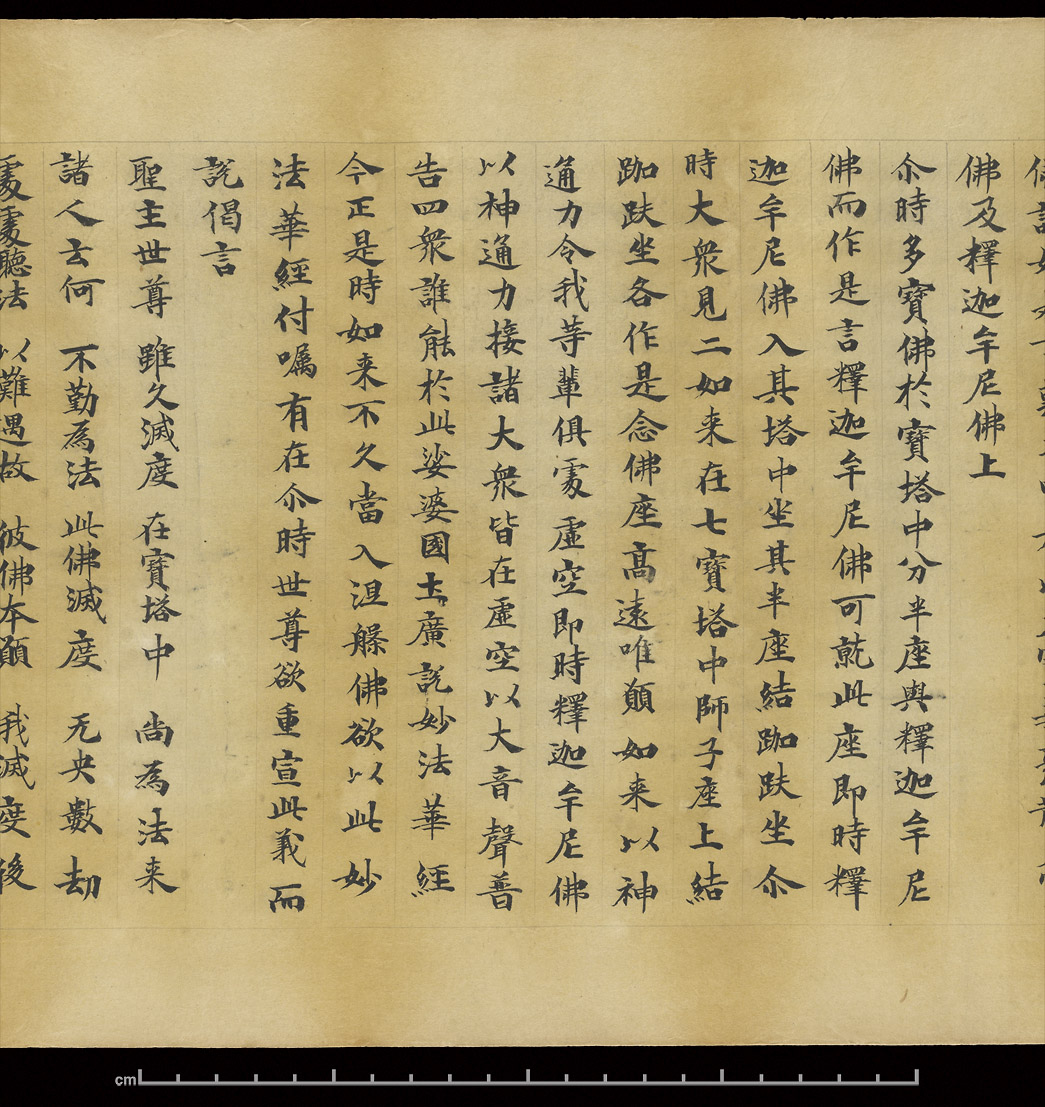 佛及釋迦牟尼佛上
尒時多寶佛於寶塔中分半座與釋迦牟尼
佛而作是言釋迦牟尼佛可就此座即時釋
迦牟尼佛入其塔中坐其半座結跏趺坐尒
時大衆見二如来在七寶塔中師子座上結
跏趺坐各作是念佛座高遠唯願如来以神
通力令我等輩俱處虛空即時釋迦牟尼佛
以神通力接諸大衆皆在虛空以大音聲普
告四衆誰能於此娑婆國土廣説妙法華經
今正是時如来不久當入涅槃佛欲以此妙
法華經付囑有在尒時世尊欲重宣此義而
説偈言
聖主世尊 雖久滅度 在寶塔中 尚為法来
諸人云何 不勤為法 此佛滅度 无央數劫
處處聽法 以難遇故 彼佛本願 我滅度後